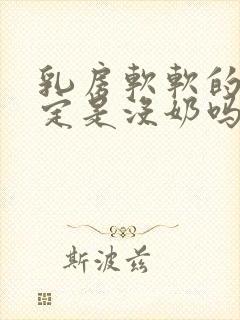 乳房軟軟的
定是沒奶嗎
斯波茲